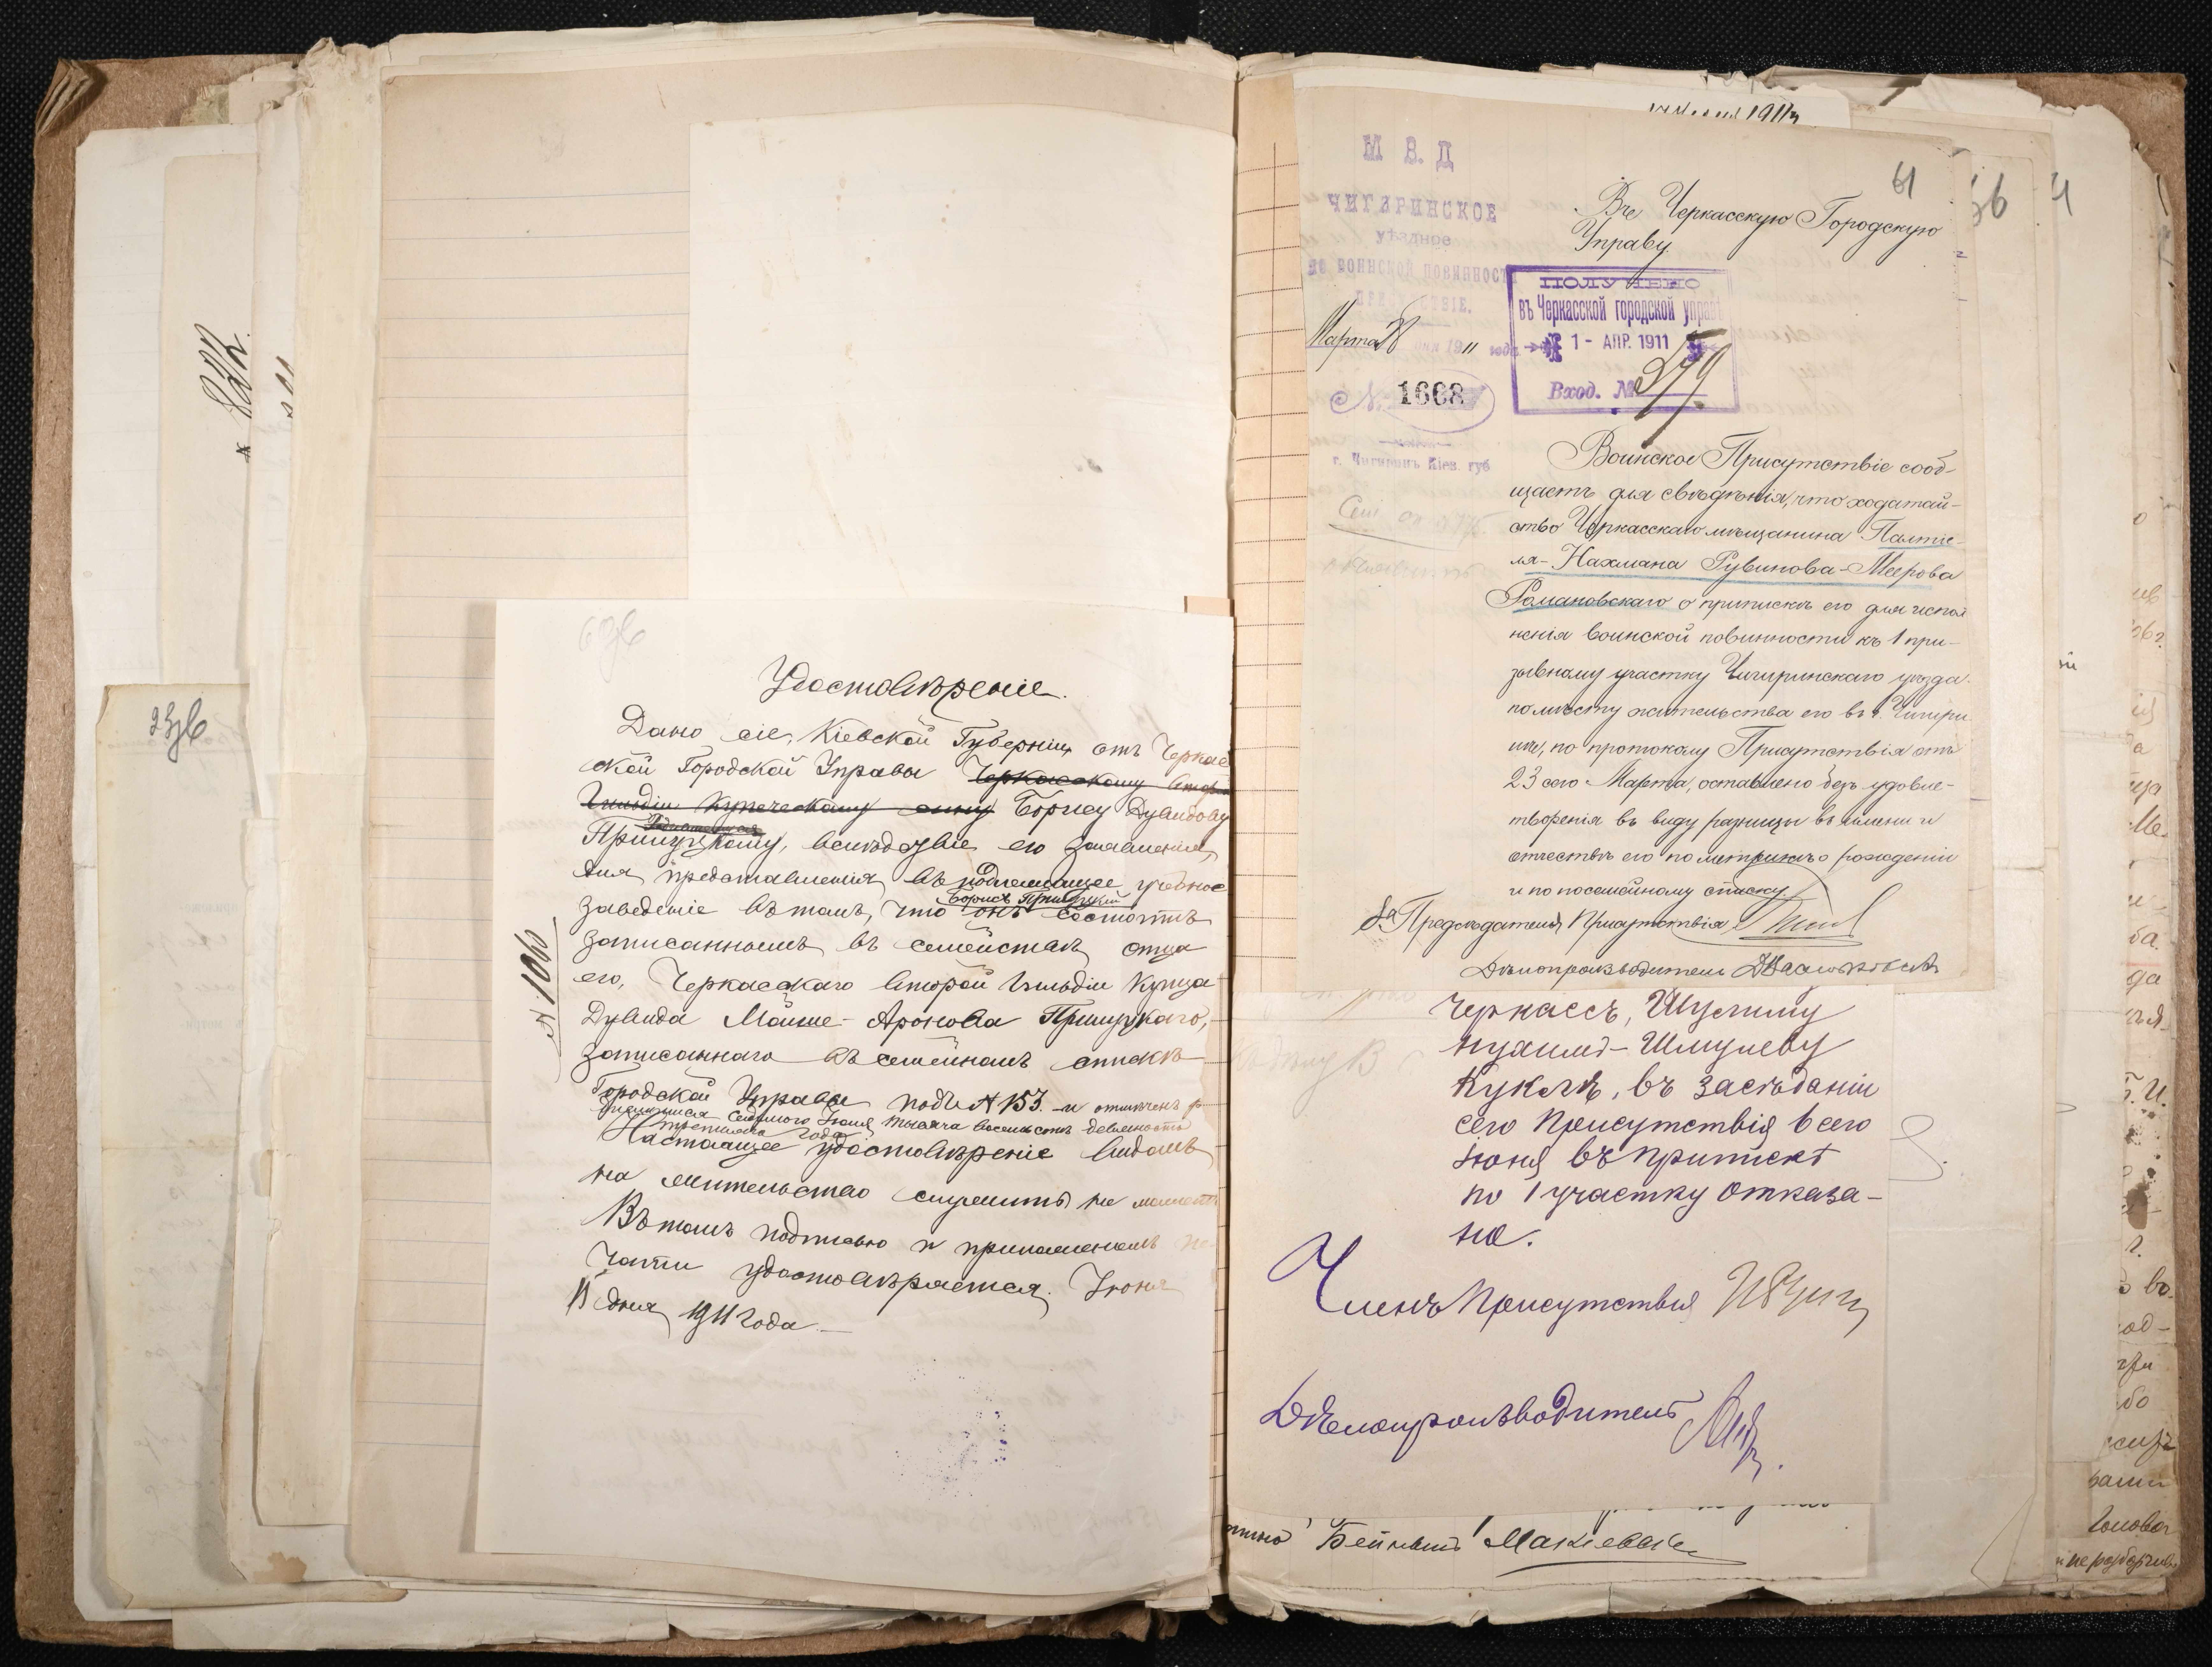 Удостовѣреніе.
Дано сіе, Кіевской Губерніи отъ Черкас
ской Городской Управы Черкасскому второй
Гильдіи Купеческому сыну Борису Дувидову
Прилуцкому, вслѣдствіе его заявленія,
для представленія въ подлежащее учебное
Борисъ Прилуцкій
заведеніе въ томъ, что онъ состоитъ
записаннымъ въ семействѣ отца
его, Черкасскаго второй Гильдіи Купца
Дувида Мойше-Аронова Прилуцкаго,
записаннаго въ семейномъ спискѣ
Городской Управы подъ № 153. и отмѣченъ р
дившимся седьмого Іюня тысяча восемьсотъ девяносто
третьяго года
Настоящее удостовѣреніе видомъ
на жительство служить не можетъ
Въ томъ подписью и приложеніемъ пе
чати удостовѣряется. Іюня
11 дня 1911 года
М В. Д
ЧИГИРИНСКОЕ
уѣздное
по воинской повинности
ПРИСУТСТВІЕ.
Марта 28 дня 1911 года
№ 1668
г. Чигиринъ Кіев. губ
61
Въ Черкасскую Городскую
Управу
ПОЛУЧЕНО
въ Черкасской городской управѣ
1 - АПР. 1911
Вход. №
Воинское Присутствіе сооб-
щаетъ для свѣдѣнія, что ходатай-
ство Черкасскаго мѣщанина Палтіе-
ля-Нахмана Рувинова-Меерова
Романовскаго о припискѣ его для испол
ненія воинской повинности къ 1 при-
зывному участку Чигиринскаго уѣзда
по мѣсту жительства его въ г. Чигири
нѣ, по протоколу Присутствія отъ
23 сего Марта, оставлено безъ удовле-
творенія въ виду разницы въ имени и
отчествѣ его по метрикѣ о рожденіи
и по посемейному списку.
За Предсѣдателя Присутствія
Дѣлопроизводитель
Черкассъ, Шулиму
Нухимъ-Шмулеву
Куклѣ, въ засѣданіи
сего Присутствія 6 сего
Іюня въ припискѣ
по 1 участку отказа-
но.
Членъ Присутствія
Дѣлопроизводитель
Бейнышъ Макіевскі